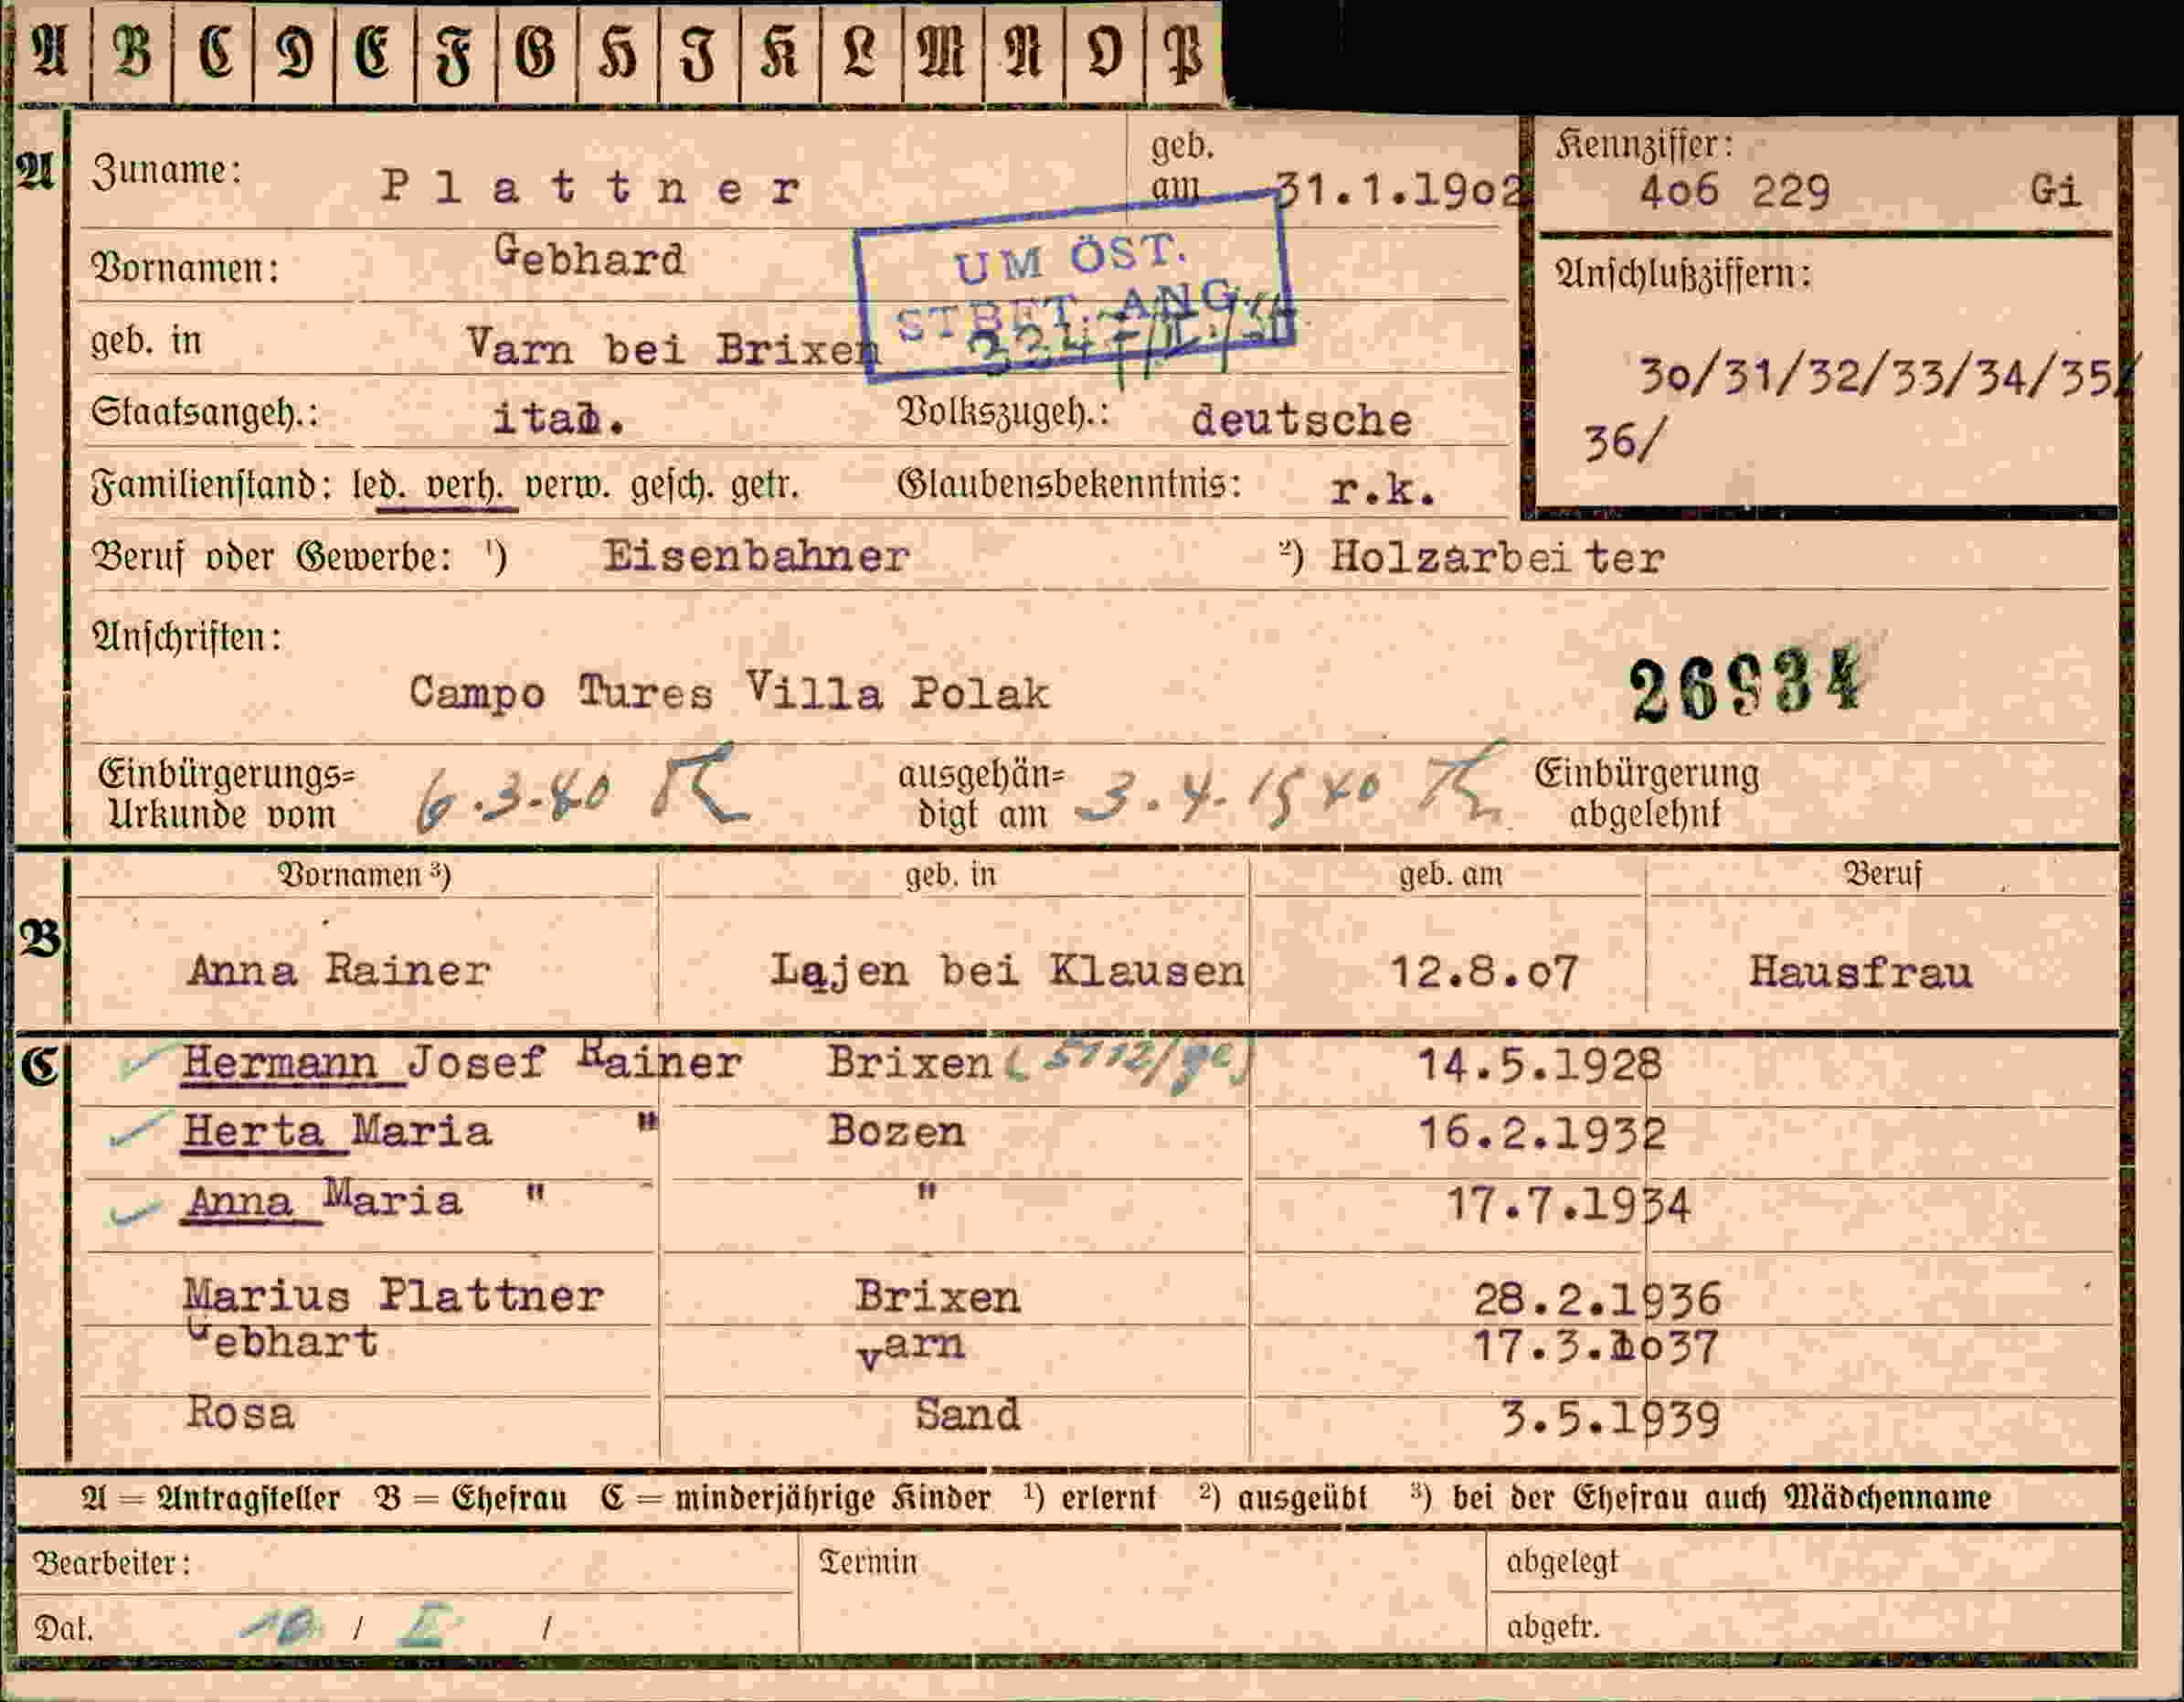 A B C D E F G H I K L M N O P
A Zuname: Plattner geb. am 31.1.1902 Kennziffer: 4o6 229 Gi
Vornamen: Gebhard
UM ÖST.
STBET. ANG
Anschlußziffern:
geb. in Varn bei Brixen
30/31/32/33/34/35/
36/
Staatsangeh.: ital. Volkszugeh.: deutsche
Familienstand: led. verh. verw. gesch. getr. Glaubensbekenntnis: r.k.
Beruf oder Gewerbe: ¹) Eisenbahner ²) Holzarbeiter
Anschriften:
Campo Tures Villa Polak 26934
Einbürgerungs=
Urkunde vom 6.3.40
ausgehän=
digt am 3.4.1940
Einbürgerung
abgelehnt
Vornamen ³) geb. in geb. am Beruf
B Anna Rainer Lajen bei Klausen 12.8.o7 Hausfrau
C Hermann Josef Rainer Brixen 14.5.1928
Herta Maria " Bozen 16.2.1932
Anna Maria " " 17.7.1934
Marius Plattner Brixen 28.2.1936
Gebhart Varn 17.3.1o37
Rosa Sand 3.5.1939
A = Antragsteller B = Ehefrau C = minderjährige Kinder ¹) erlernt ²) ausgeübt ³) bei der Ehefrau auch Mädchenname
Bearbeiter: Termin abgelegt
Dat. 10 / II / abgetr.